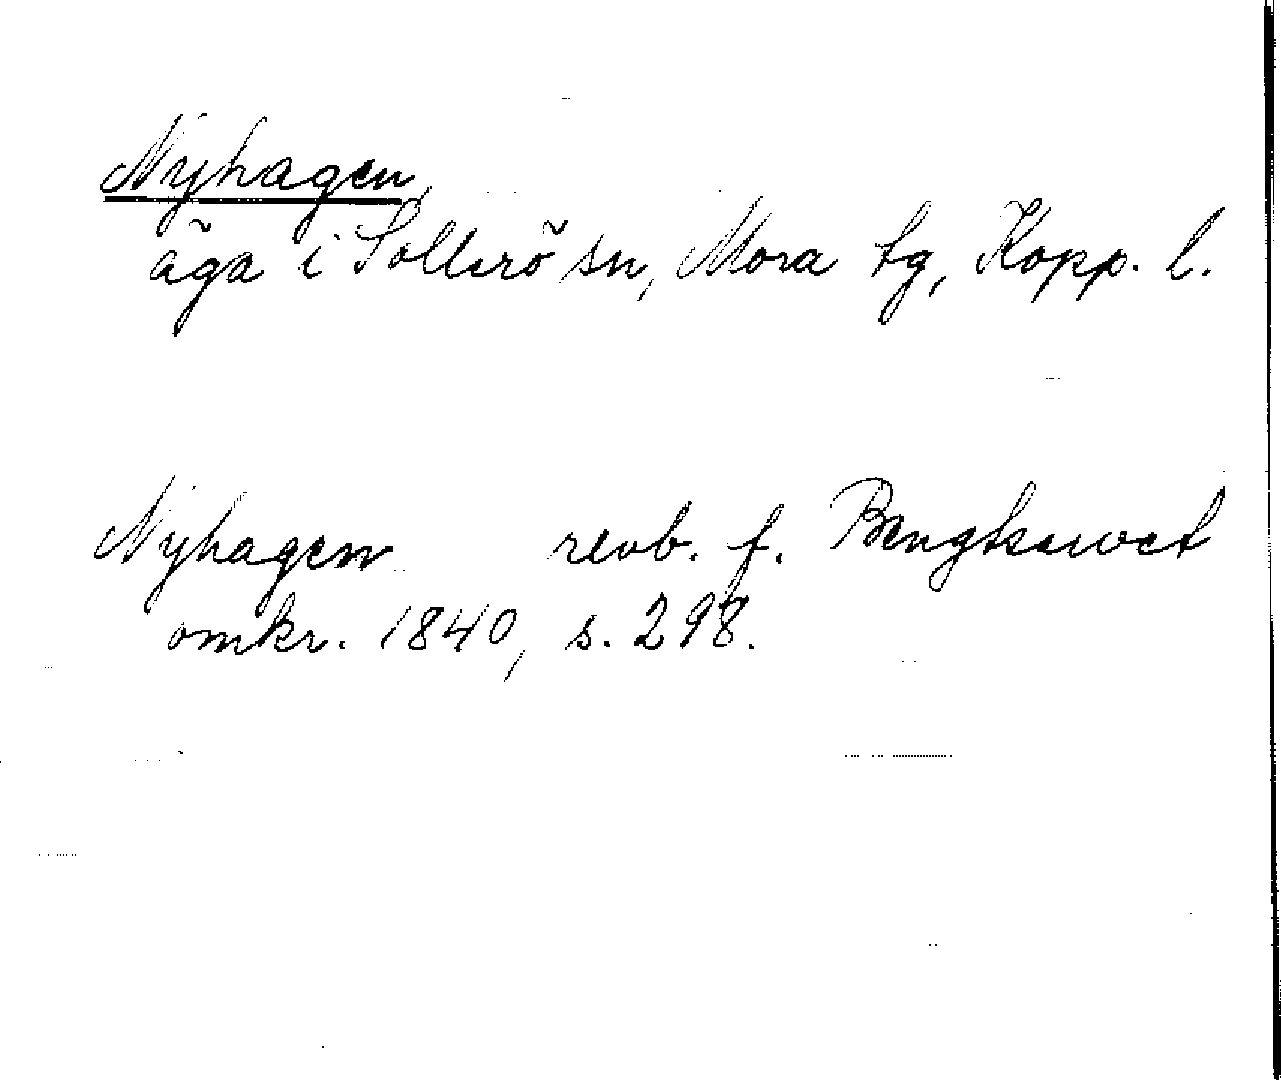 Nyhagen,
äga i Sollerö sn, Mora tg, Kopp. l.
Nyhagen revb. f. Bengtsarvet
omkr. 1840, s. 298.